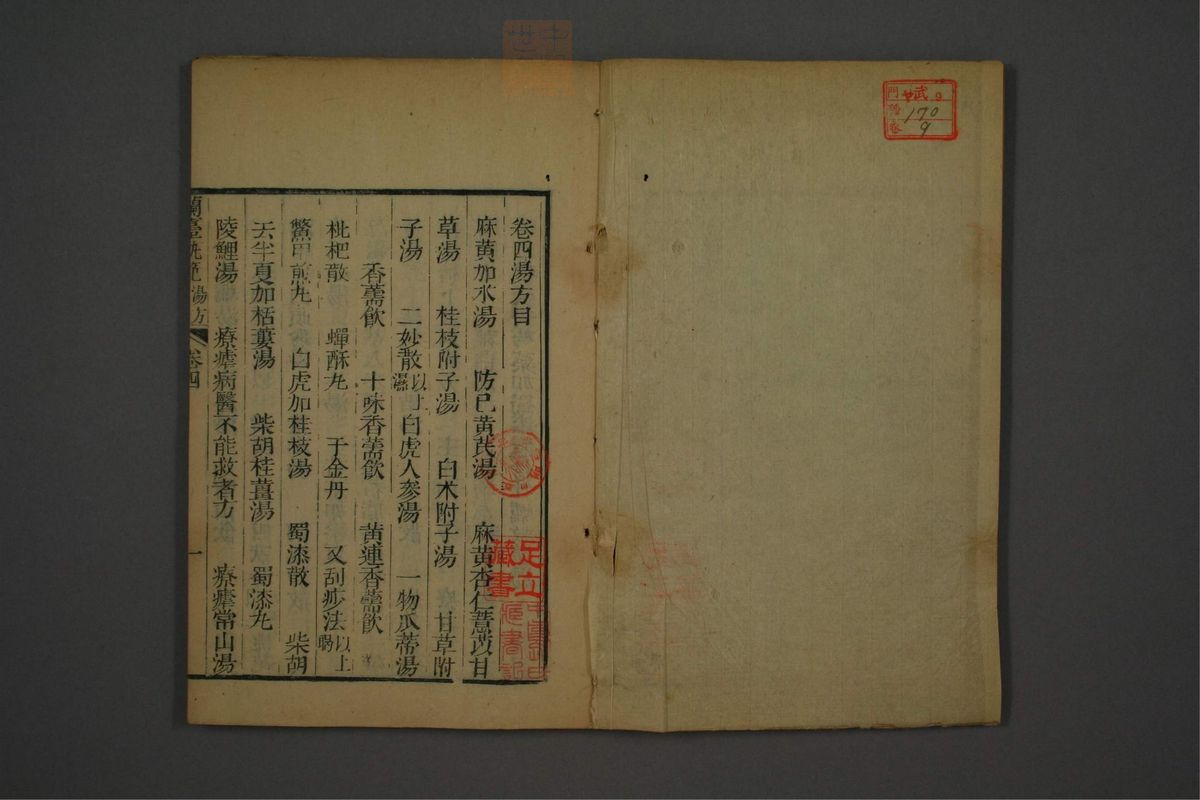 卷四湯方目
麻黄加朮湯　防已黄芪湯　麻黄杏仁薏苡甘
草湯　桂枝附子湯　白术附子湯　甘草附
子湯　二妙散以上濕　白虎人參湯　一物瓜蒂湯
香薷飲　十味香薷飲　黄連香薷飲
枇杷散　蟬酥丸　于金丹　又刮痧法以上暍
鱉甲煎丸　白虎加桂枝湯　蜀漆散　柴胡
去半夏加栝蔞湯　柴胡桂薑湯　蜀漆丸
陵鯉湯　療瘧病醫不能救者方　療瘧常山湯
蘭臺軌範　湯方　卷四　一
足立
藏書
門 號 卷
170
9